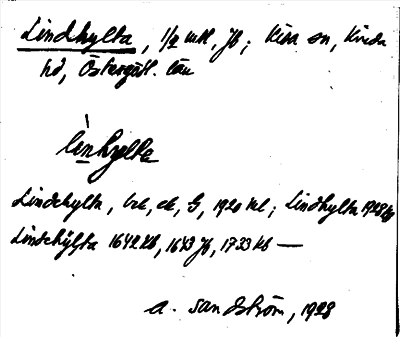 Lindhylta, 1/2 mtl, Jb; Kisa sn, Kinda
hd, Östergötl. län
lìnhylta
Lindehylta, ek, G, 1920 kl; Lindhylta 1928 kb
Lindehylta 1642 kb, 1643 Jb, 1733 kb —
A. Sandström, 1928